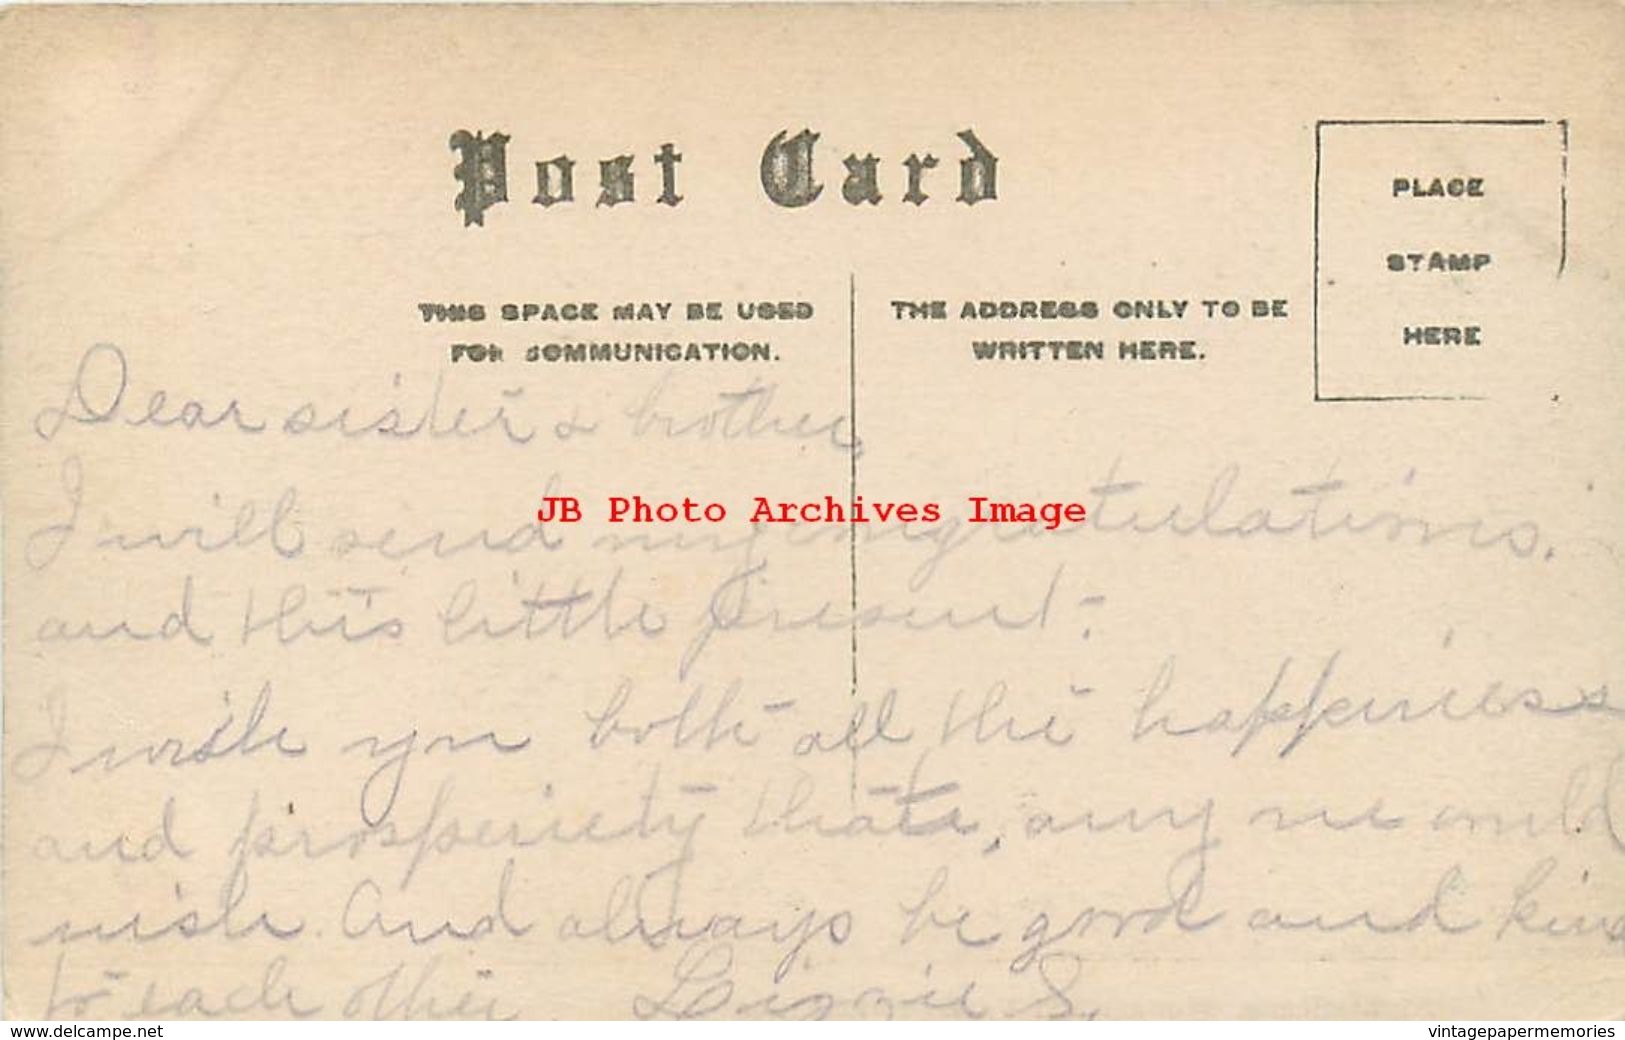 Post Card
PLACE
STAMP
HERE
THIS SPACE MAY BE USED
FOR COMMUNICATION.
THE ADDRESS ONLY TO BE
WRITTEN HERE.
Dear sister & brother,
I will send my congratulations.
and this little present.
I wish you both all the happiness
and prosperiety that, any one could
wish. And always be good and kind
to each other Lizzie S.
JB Photo Archives Image
www.delcampe.net
vintagepapermemories